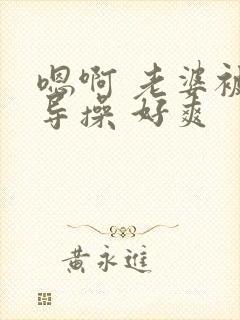 嗯啊 老婆被
导操 好爽
黄永进